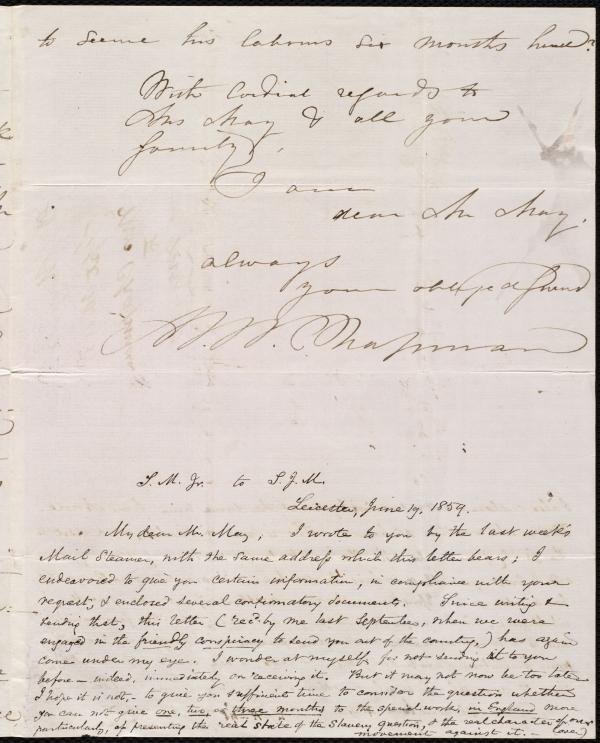 to secure his labours six months hence?
With cordial regards to
Mr May & all your
family,
I am
dear Mr May,
always
your obliged friend
M. W. Chapman
S. M. Jr. to S. J. M.
Leicester, June 19, 1859.
My dear Mr. May, I wrote to you by the last week's
Mail Steamer, with the same address which this letter bears; I
endeavored to give you certain information, in compliance with your
request, & enclosed several confirmatory documents. Since writing &
sending that, this letter (rec'd by me last September, when we were
engaged in the friendly conspiracy to send you out of the country,) has again
come under my eye. I wonder at myself for not sending it to you
before - indeed, immediately on receiving it. But it may not now be too late,
I hope it is not, - to give you sufficient time to consider the question whether
you can not give one, two, or three months to the special work, in England more
particularly, of presenting the real state of the Slavery question, & the real character of our
movement against it. - (over)